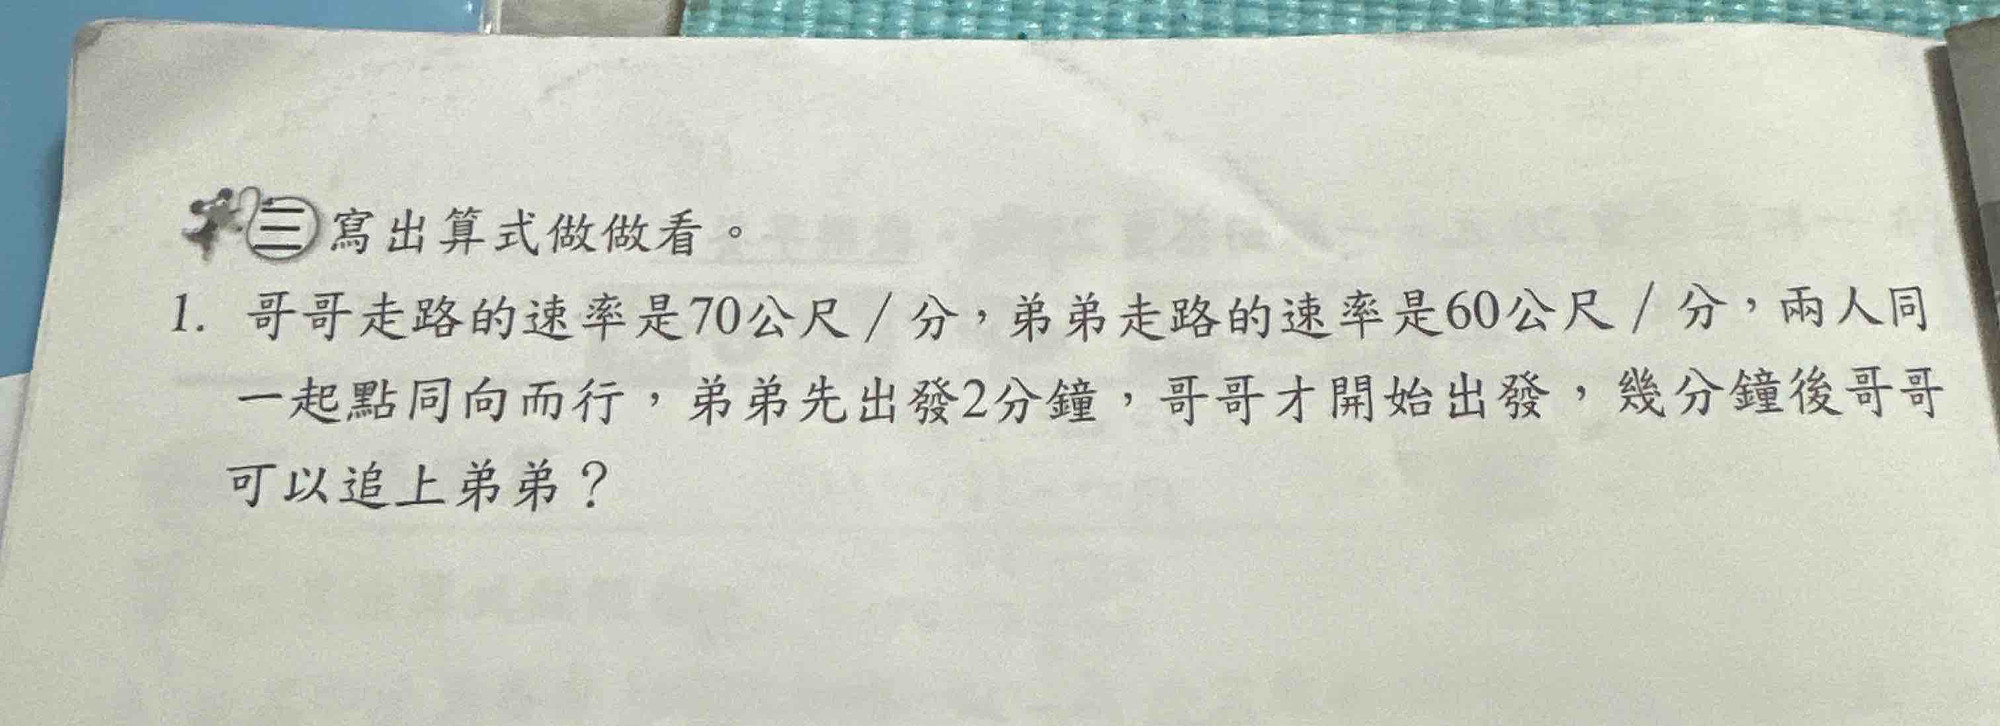 ㊂寫出算式做做看。
1. 哥哥走路的速率是70公尺/分，弟弟走路的速率是60公尺/分，兩人同
一起點同向而行，弟弟先出發2分鐘，哥哥才開始出發，幾分鐘後哥哥
可以追上弟弟？